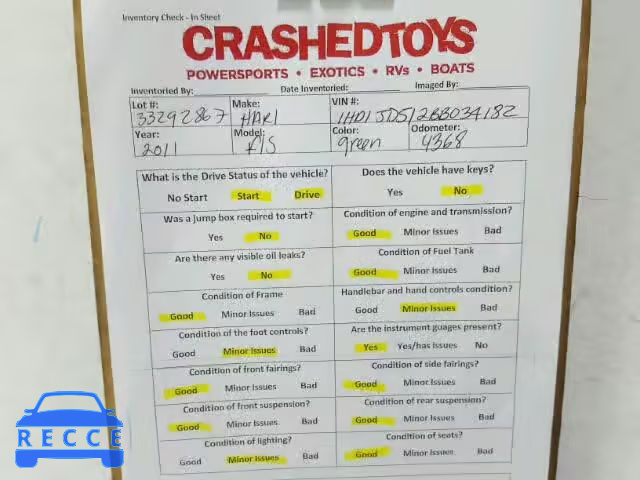 Inventory Check - In Sheet
CRASHEDTOYS
POWERSPORTS • EXOTICS • RVs • BOATS
Inventoried By: Date Inventoried: Imaged By:
Lot #: Make: VIN #:
33292867 HARl 1HD1JDS12BB034182
Year: Model: Color: Odometer:
2011 green 4368
What is the Drive Status of the vehicle? Does the vehicle have keys?
No Start Start Drive Yes No
Was a jump box required to start? Condition of engine and transmission?
Yes No Good Minor Issues Bad
Are there any visible oil leaks? Condition of Fuel Tank
Yes No Good Minor Issues Bad
Condition of Frame Handlebar and hand controls condition?
Good Minor Issues Bad Good Minor Issues Bad
Condition of the foot controls? Are the instrument guages present?
Good Minor Issues Bad Yes Yes/has Issues No
Condition of front fairings? Condition of side fairings?
Good Minor Issues Bad Good Minor Issues Bad
Condition of front suspension? Condition of rear suspension?
Good Minor Issues Bad Good Minor Issues Bad
Condition of lighting? Condition of seats?
Good Minor Issues Bad Good Minor Issues Bad
RECCE